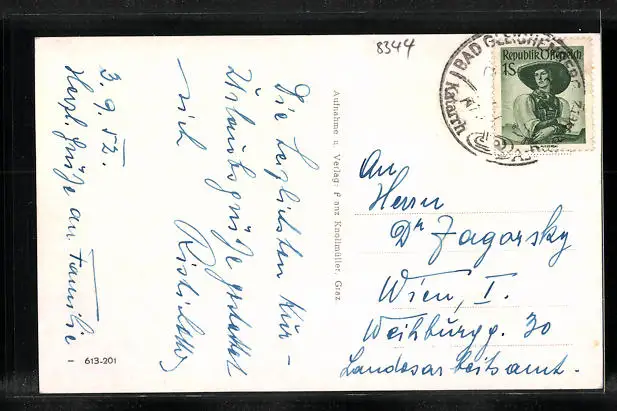 8344
BAD GLEICHENBERG
Katarrh
Republik Österreich
1S
3. 9. 52.
Herzl. Grüße an Familie
Die herzlichsten Kur-
Urlaubsgrüße gestattet
sich
Aufnahme u. Verlag: Franz Knollmüller, Graz
An
Herrn
Dr Zagorsky
Wien, I.
Weihburgg. 30
Landesarbeitsamt.
613-201